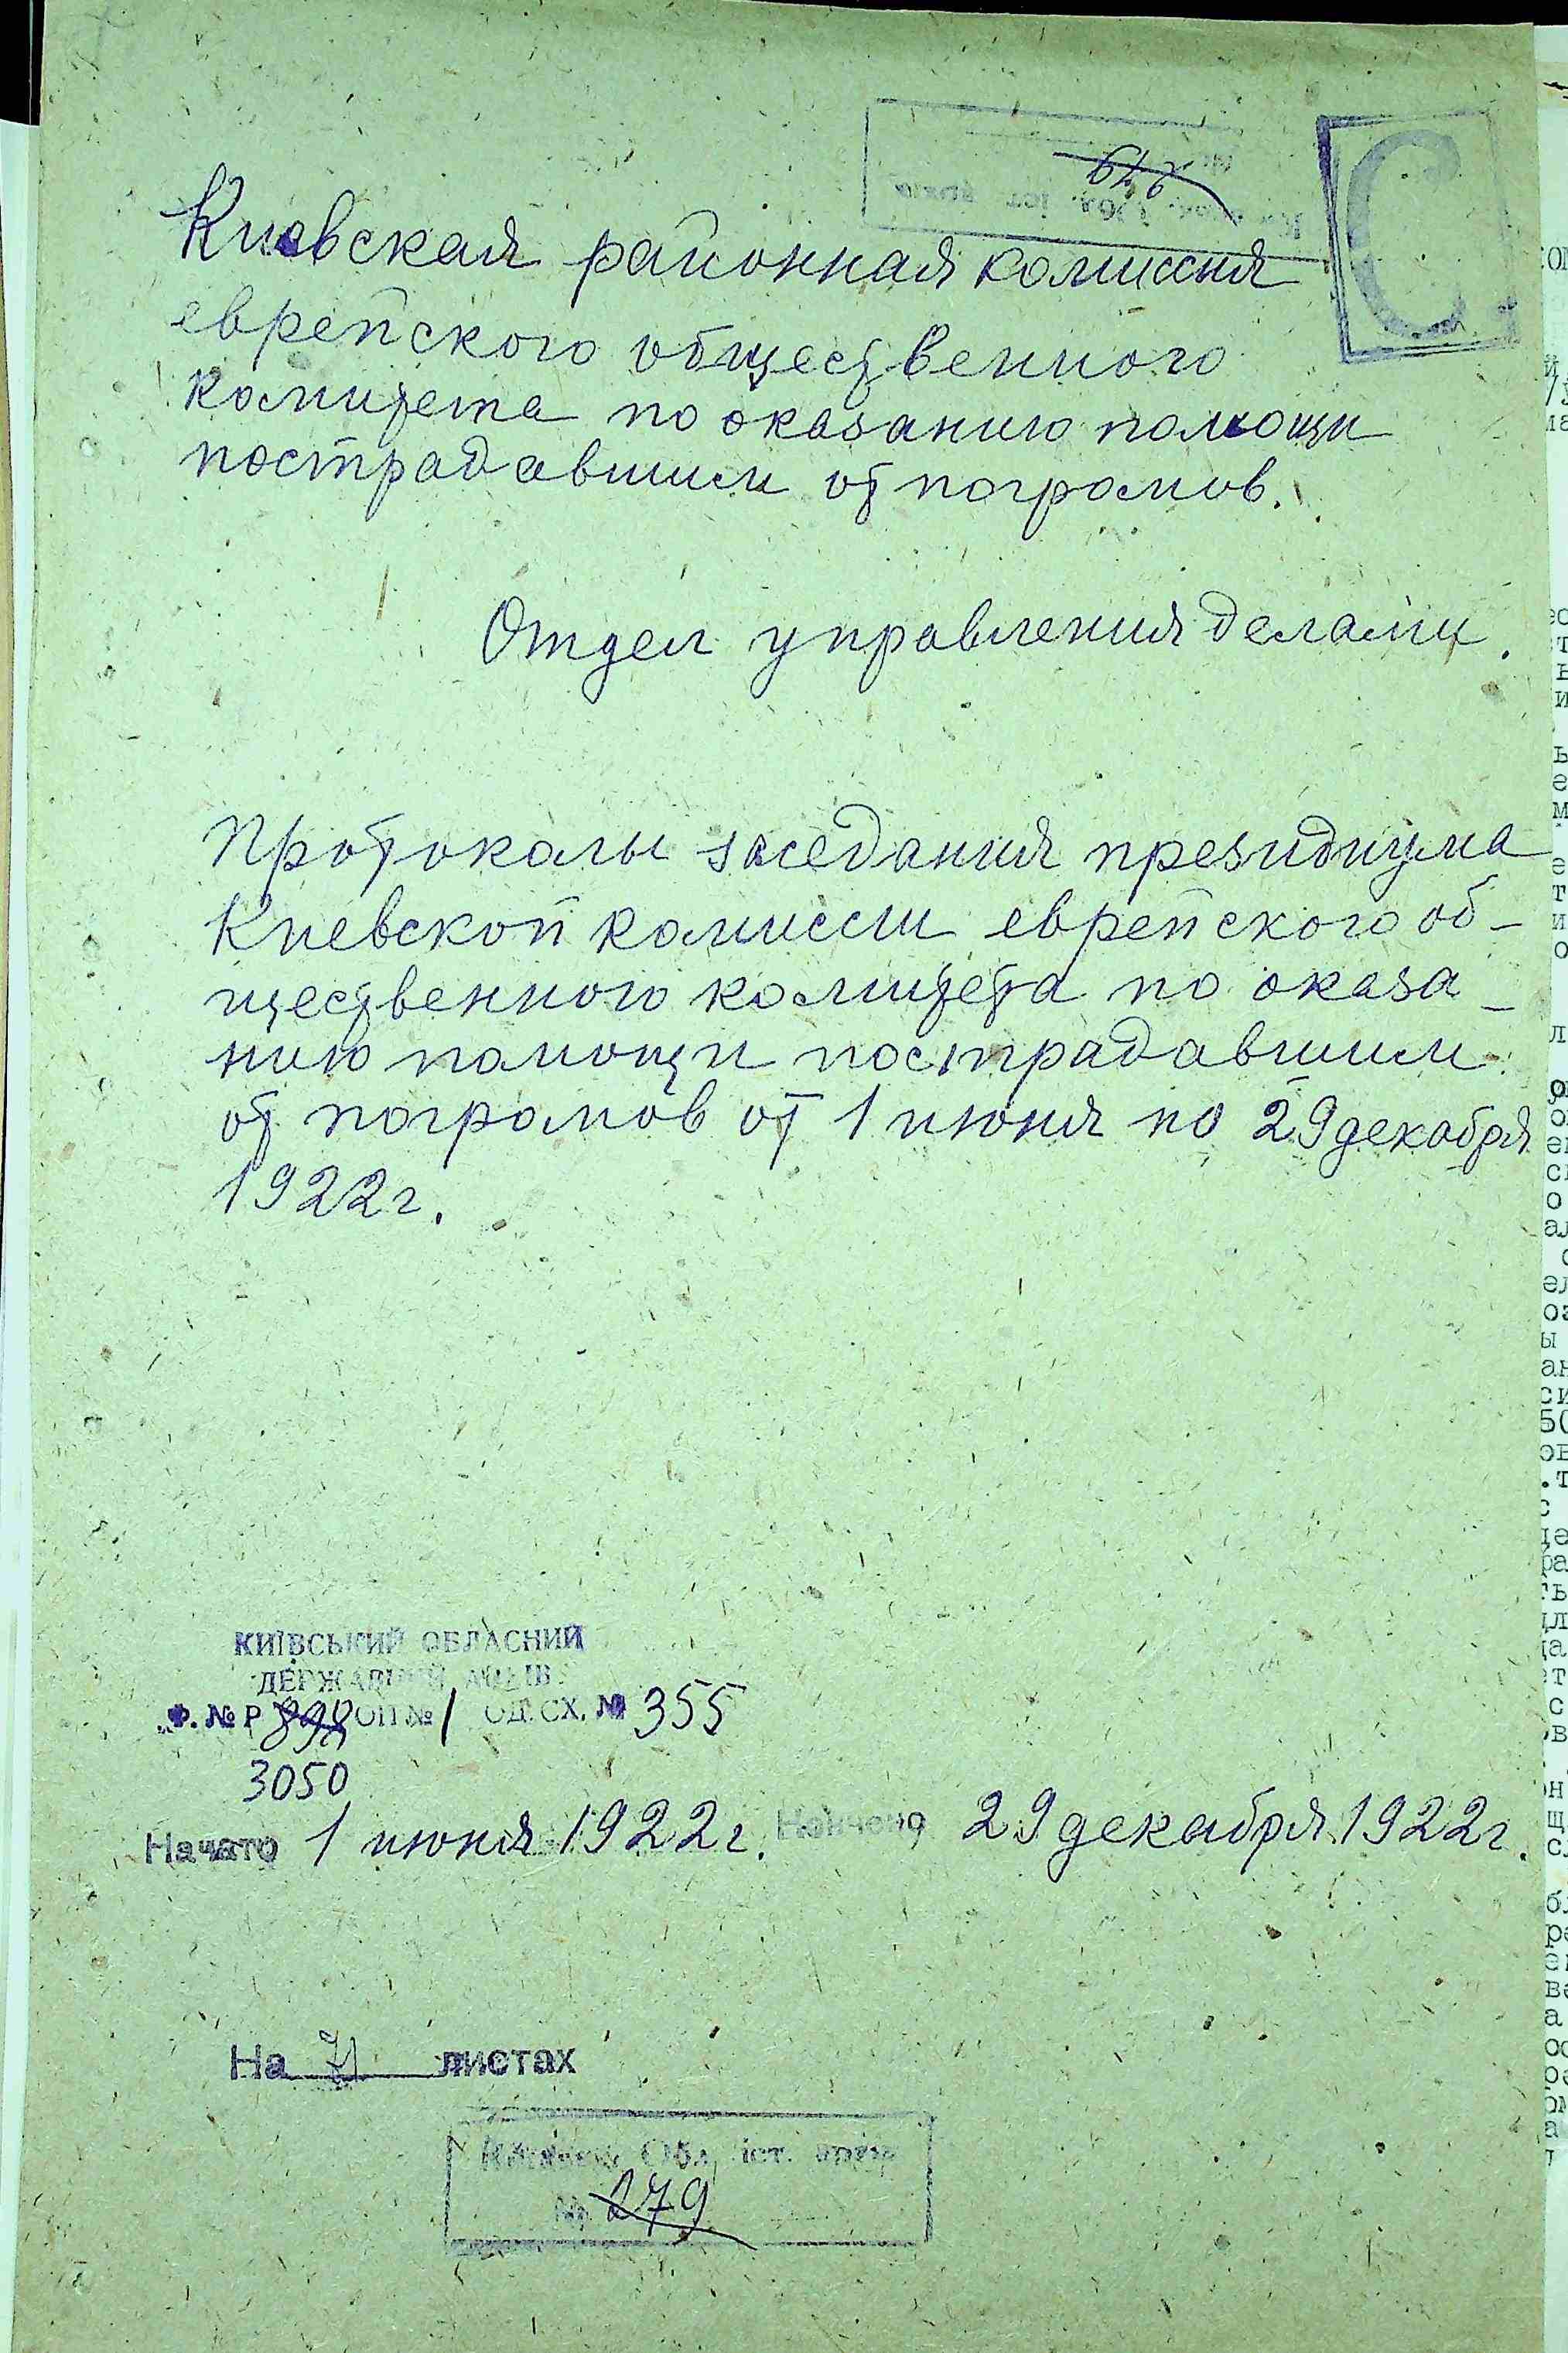 279
С
Киевская районная комиссия
еврейского общественного
комитета по оказанию помощи
пострадавшим от погромов.
Отдел управления делами.
Протоколы заседания президиума
Киевской комиссии еврейского об-
щественного комитета по оказа-
нию помощи пострадавшим
от погромов от 1 июня по 29 декабря
1922 г.
КИЇВСЬКИЙ ОБЛАСНИЙ
ДЕРЖАВНИЙ АРХІВ
Ф. № Р 898 ОП № 1 ОД. СХ. № 355
3050
Начато 1 июня 1922 г. Кончено 29 декабря 1922 г.
На 71 листах
Обл. іст. архів
№ 279